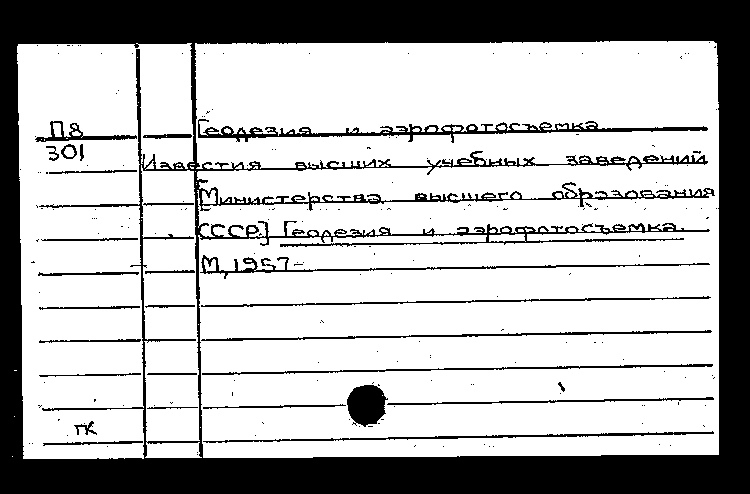 П8 Геодезия и аэрофотосъемка
301
Известия высших учебных заведений
[Министерства высшего образования
СССР.] Геодезия и аэрофотосъемка.
М., 1957-
ГК